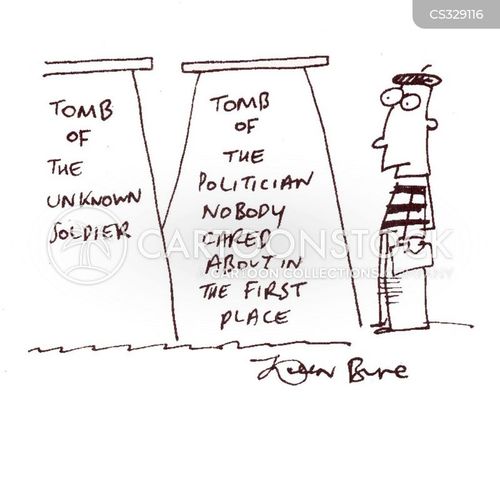 CS329116
TOMB
OF
THE
UNKNOWN
SOLDIER
TOMB
OF
THE
POLITICIAN
NOBODY
CARED
ABOUT IN
THE FIRST
PLACE
CARTOONSTOCK
CARTOON COLLECTIONS